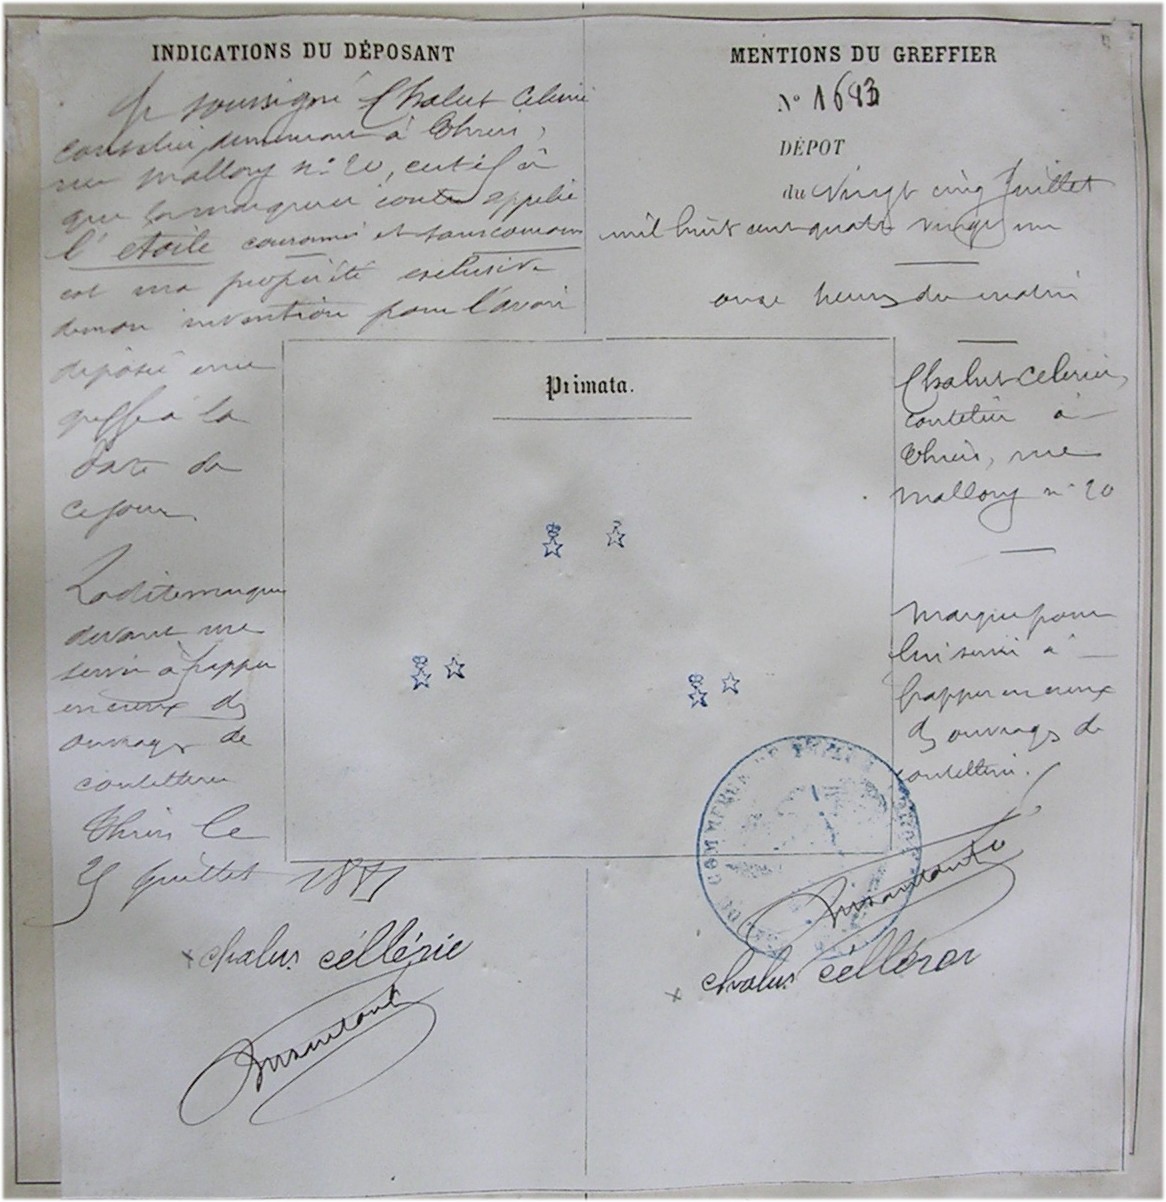 INDICATIONS DU DÉPOSANT
Je soussigné Chalus Celerier
coutelier demeurant à Thiers,
rue Mallory n° 20, certifie
que la marque ci contre appelée
l'étoile couronnée et sans couronne
est ma propriété exclusive
de mon invention pour l'avoir
déposée au
greffe à la
date de
ce jour.
Ladite marque
devant me
servir à frapper
en creux des
ouvrages de
coutellerie
Thiers le
25 Juillet 1881
chalus céllérie
MENTIONS DU GREFFIER
N° 1693
DÉPOT
du Vingt cinq Juillet
mil huit cent quatre vingt un
onze heures du matin
Primata.
Chalus Celerier,
coutelier à
Thiers, rue
Mallory n° 20
Marque pour
lui servir à
frapper en creux
des ouvrages de
coutellerie.
COMMERCE DE
chalus céllérer